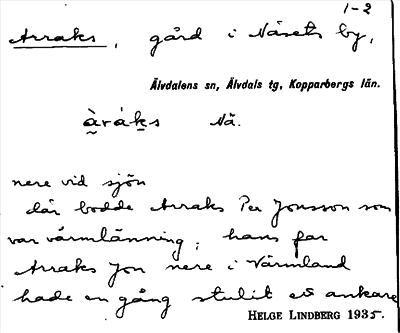 1-2
Arraks, gård i Näsets by,
Älvdalens sn, Älvdals tg, Kopparbergs län.
àrák̠s Nä.
nere vid sjön
där bodde Arraks Per Jonsson som
var värmlänning; hans far
Arraks Jon nere i Värmland
hade en gång stulit ett ankare
HELGE LINDBERG 1935.